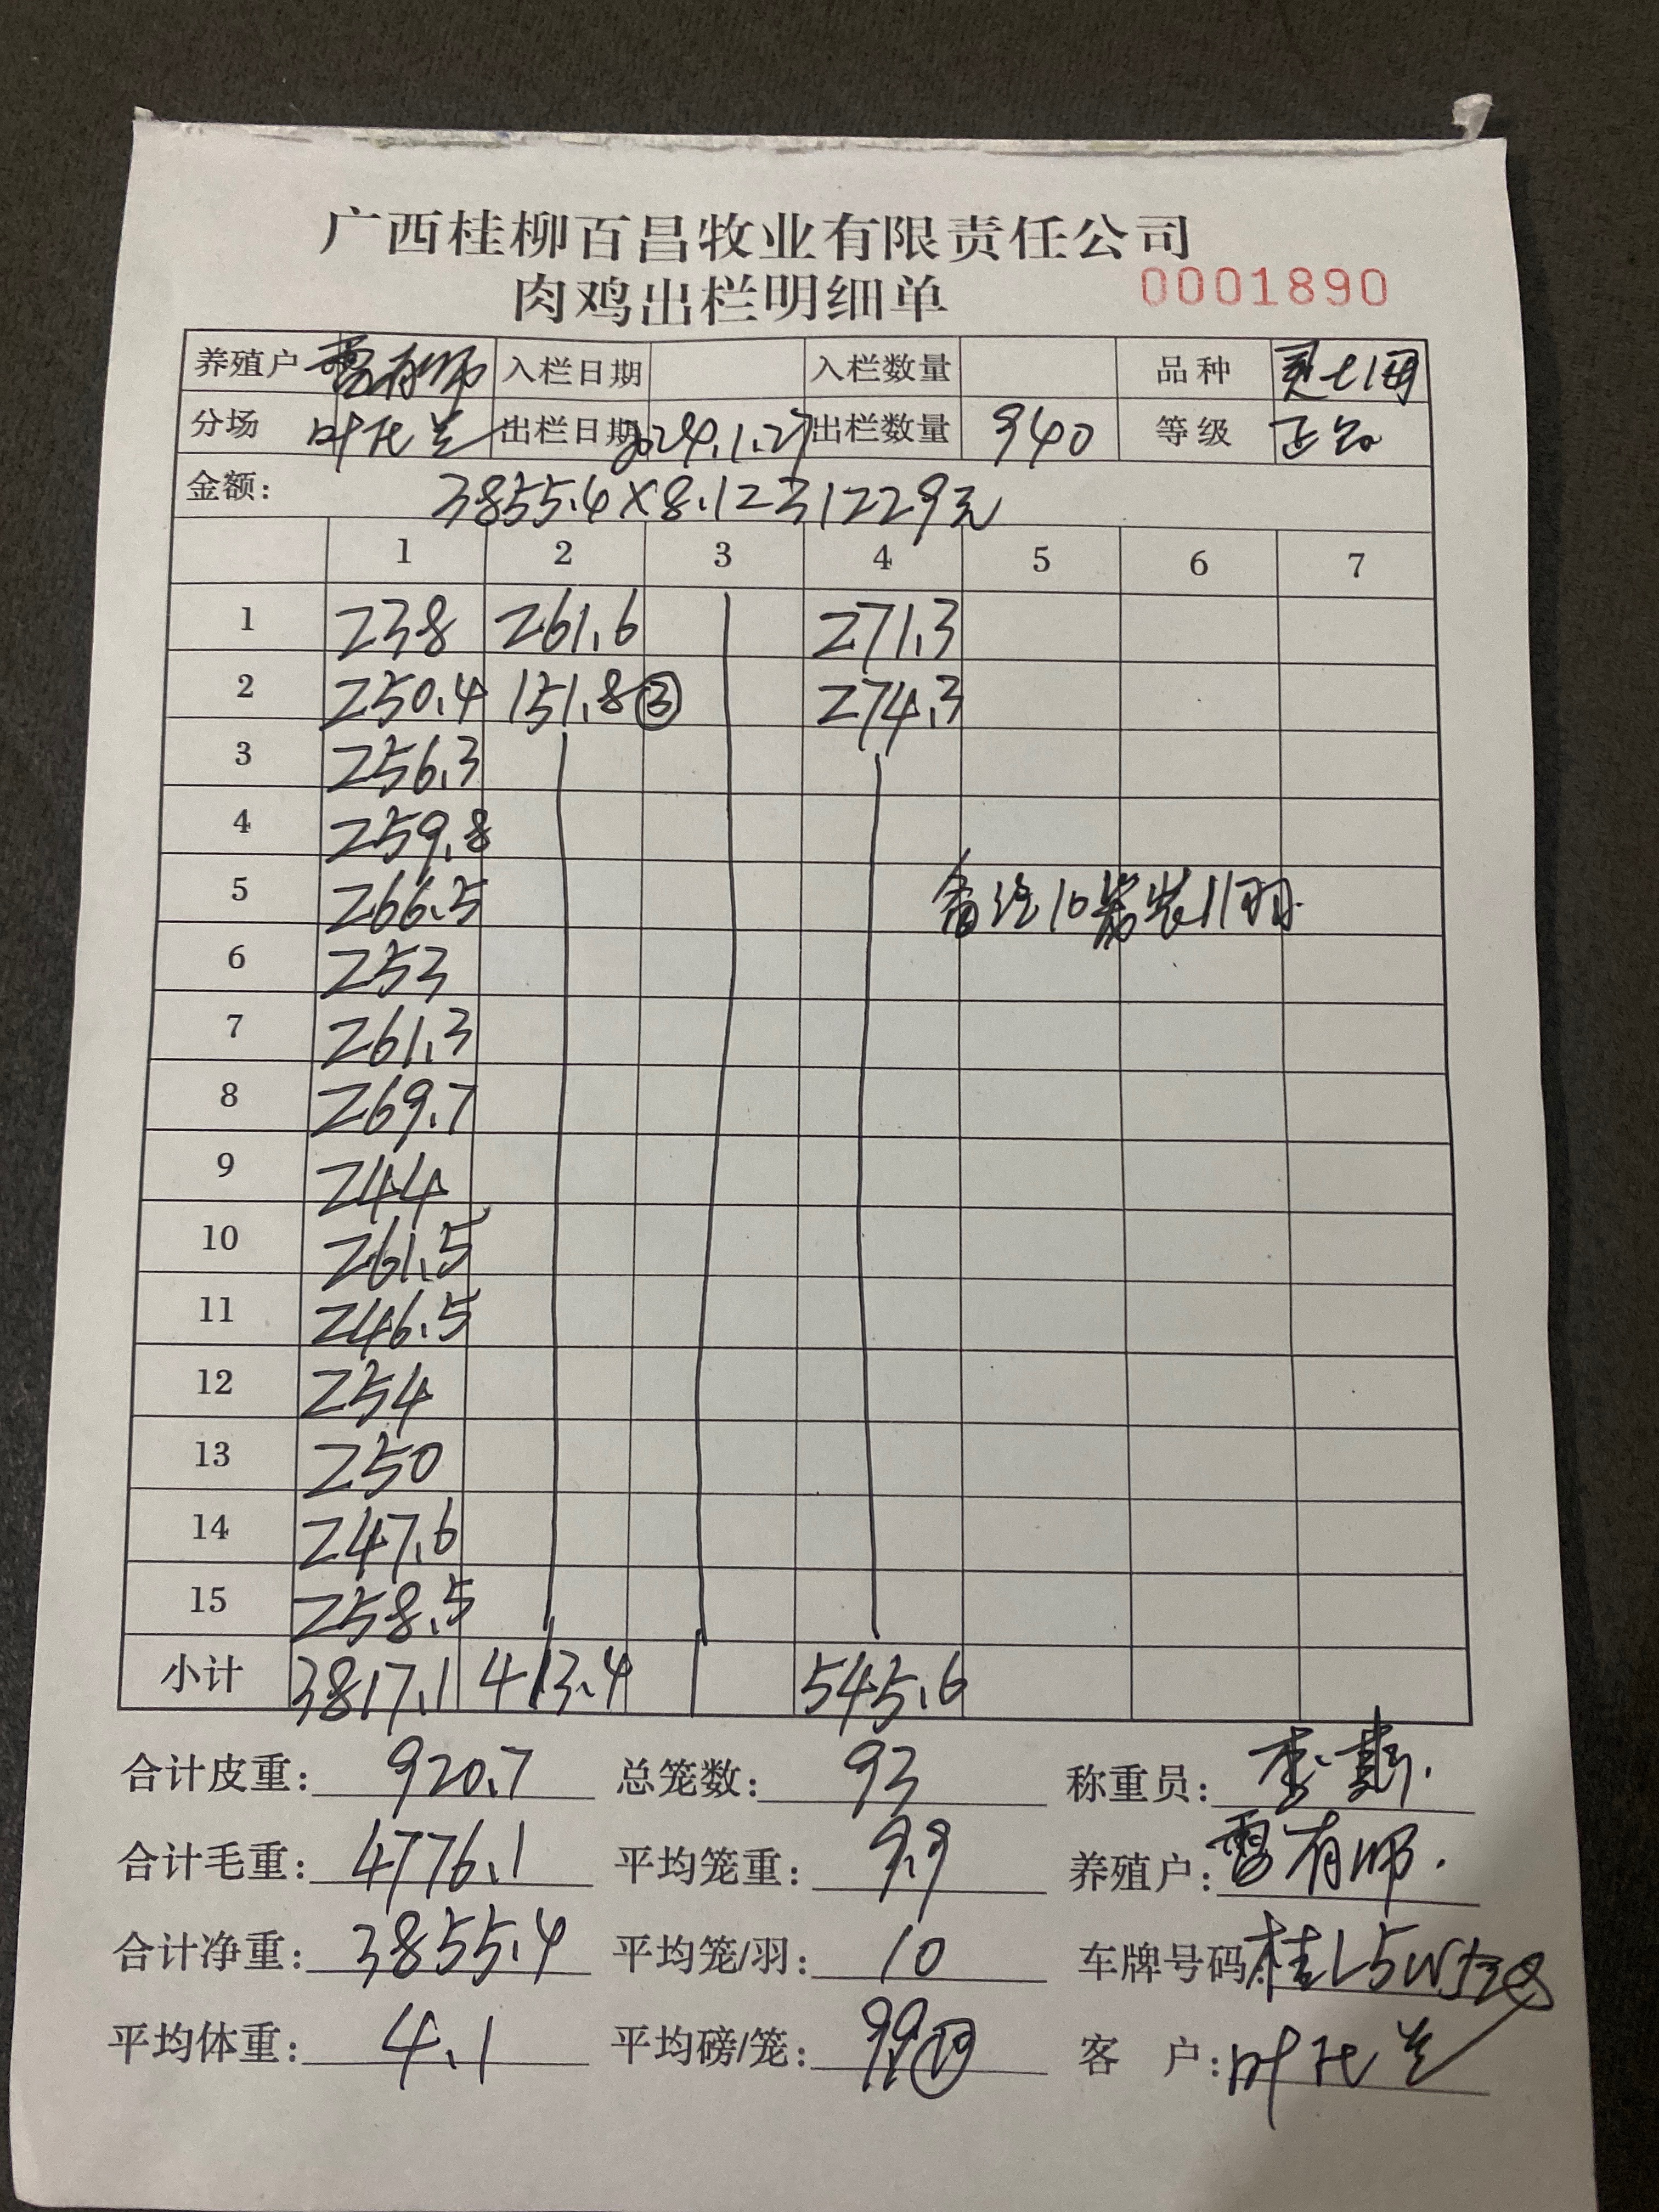 广西桂柳百昌牧业有限责任公司
肉鸡出栏明细单 0001890
养殖户 雷有师 入栏日期 入栏数量 品种
分场 叶 兰 出栏日期 2024.1.27 出栏数量 940 等级 正品
金额: 3855.4×8.1=31229元
1 2 3 4 5 6 7
1 238 261.6 271.3
2 250.4 151.8③ 274.3
3 256.3
4 259.8
5 266.5 备注10笼装11羽.
6 253
7 261.3
8 269.7
9 244
10 261.5
11 246.5
12 254
13 250
14 247.6
15 258.5
小计 3817.1 413.4 545.6
合计皮重: 920.7 总笼数: 93 称重员: 李
合计毛重: 4776.1 平均笼重: 9.9 养殖户: 雷有师.
合计净重: 3855.4 平均笼/羽: 10 车牌号码: 桂L5W
平均体重: 4.1 平均磅/笼: 客 户: 叶 兰